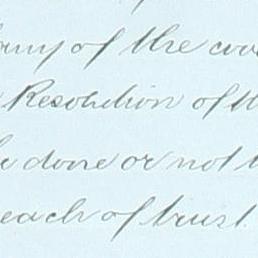 any of the
Resolution of th
done or not
each of trust